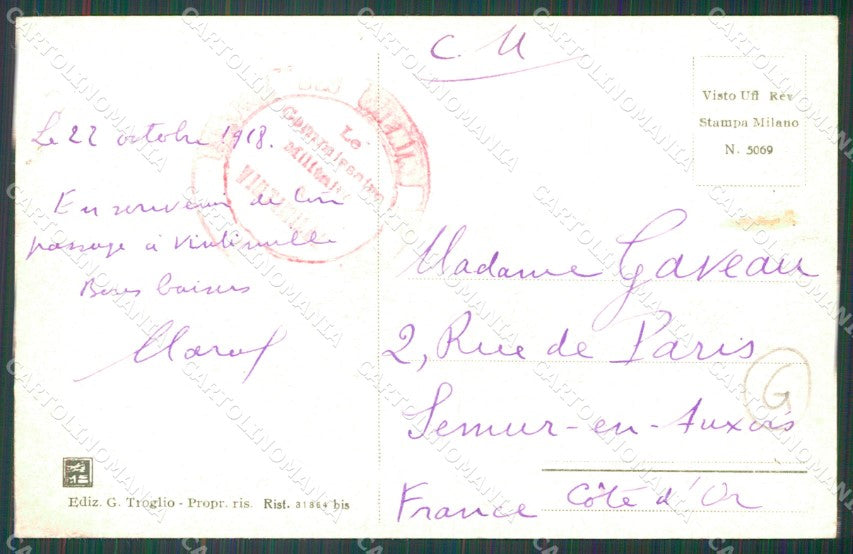 C M
Le 22 octobre 1918.
En souvenir de
passage à Vintimille
Bons baisers
Visto Uff Rev
Stampa Milano
N. 5069
Le
Commissaire
Militaire
Madame Gaveau
2, Rue de Paris
Semur-en-Auxois
Côte d'Or
France
G
Ediz. G. Troglio - Propr. ris. Rist. 31864 bis
CARTOLINOMANIA